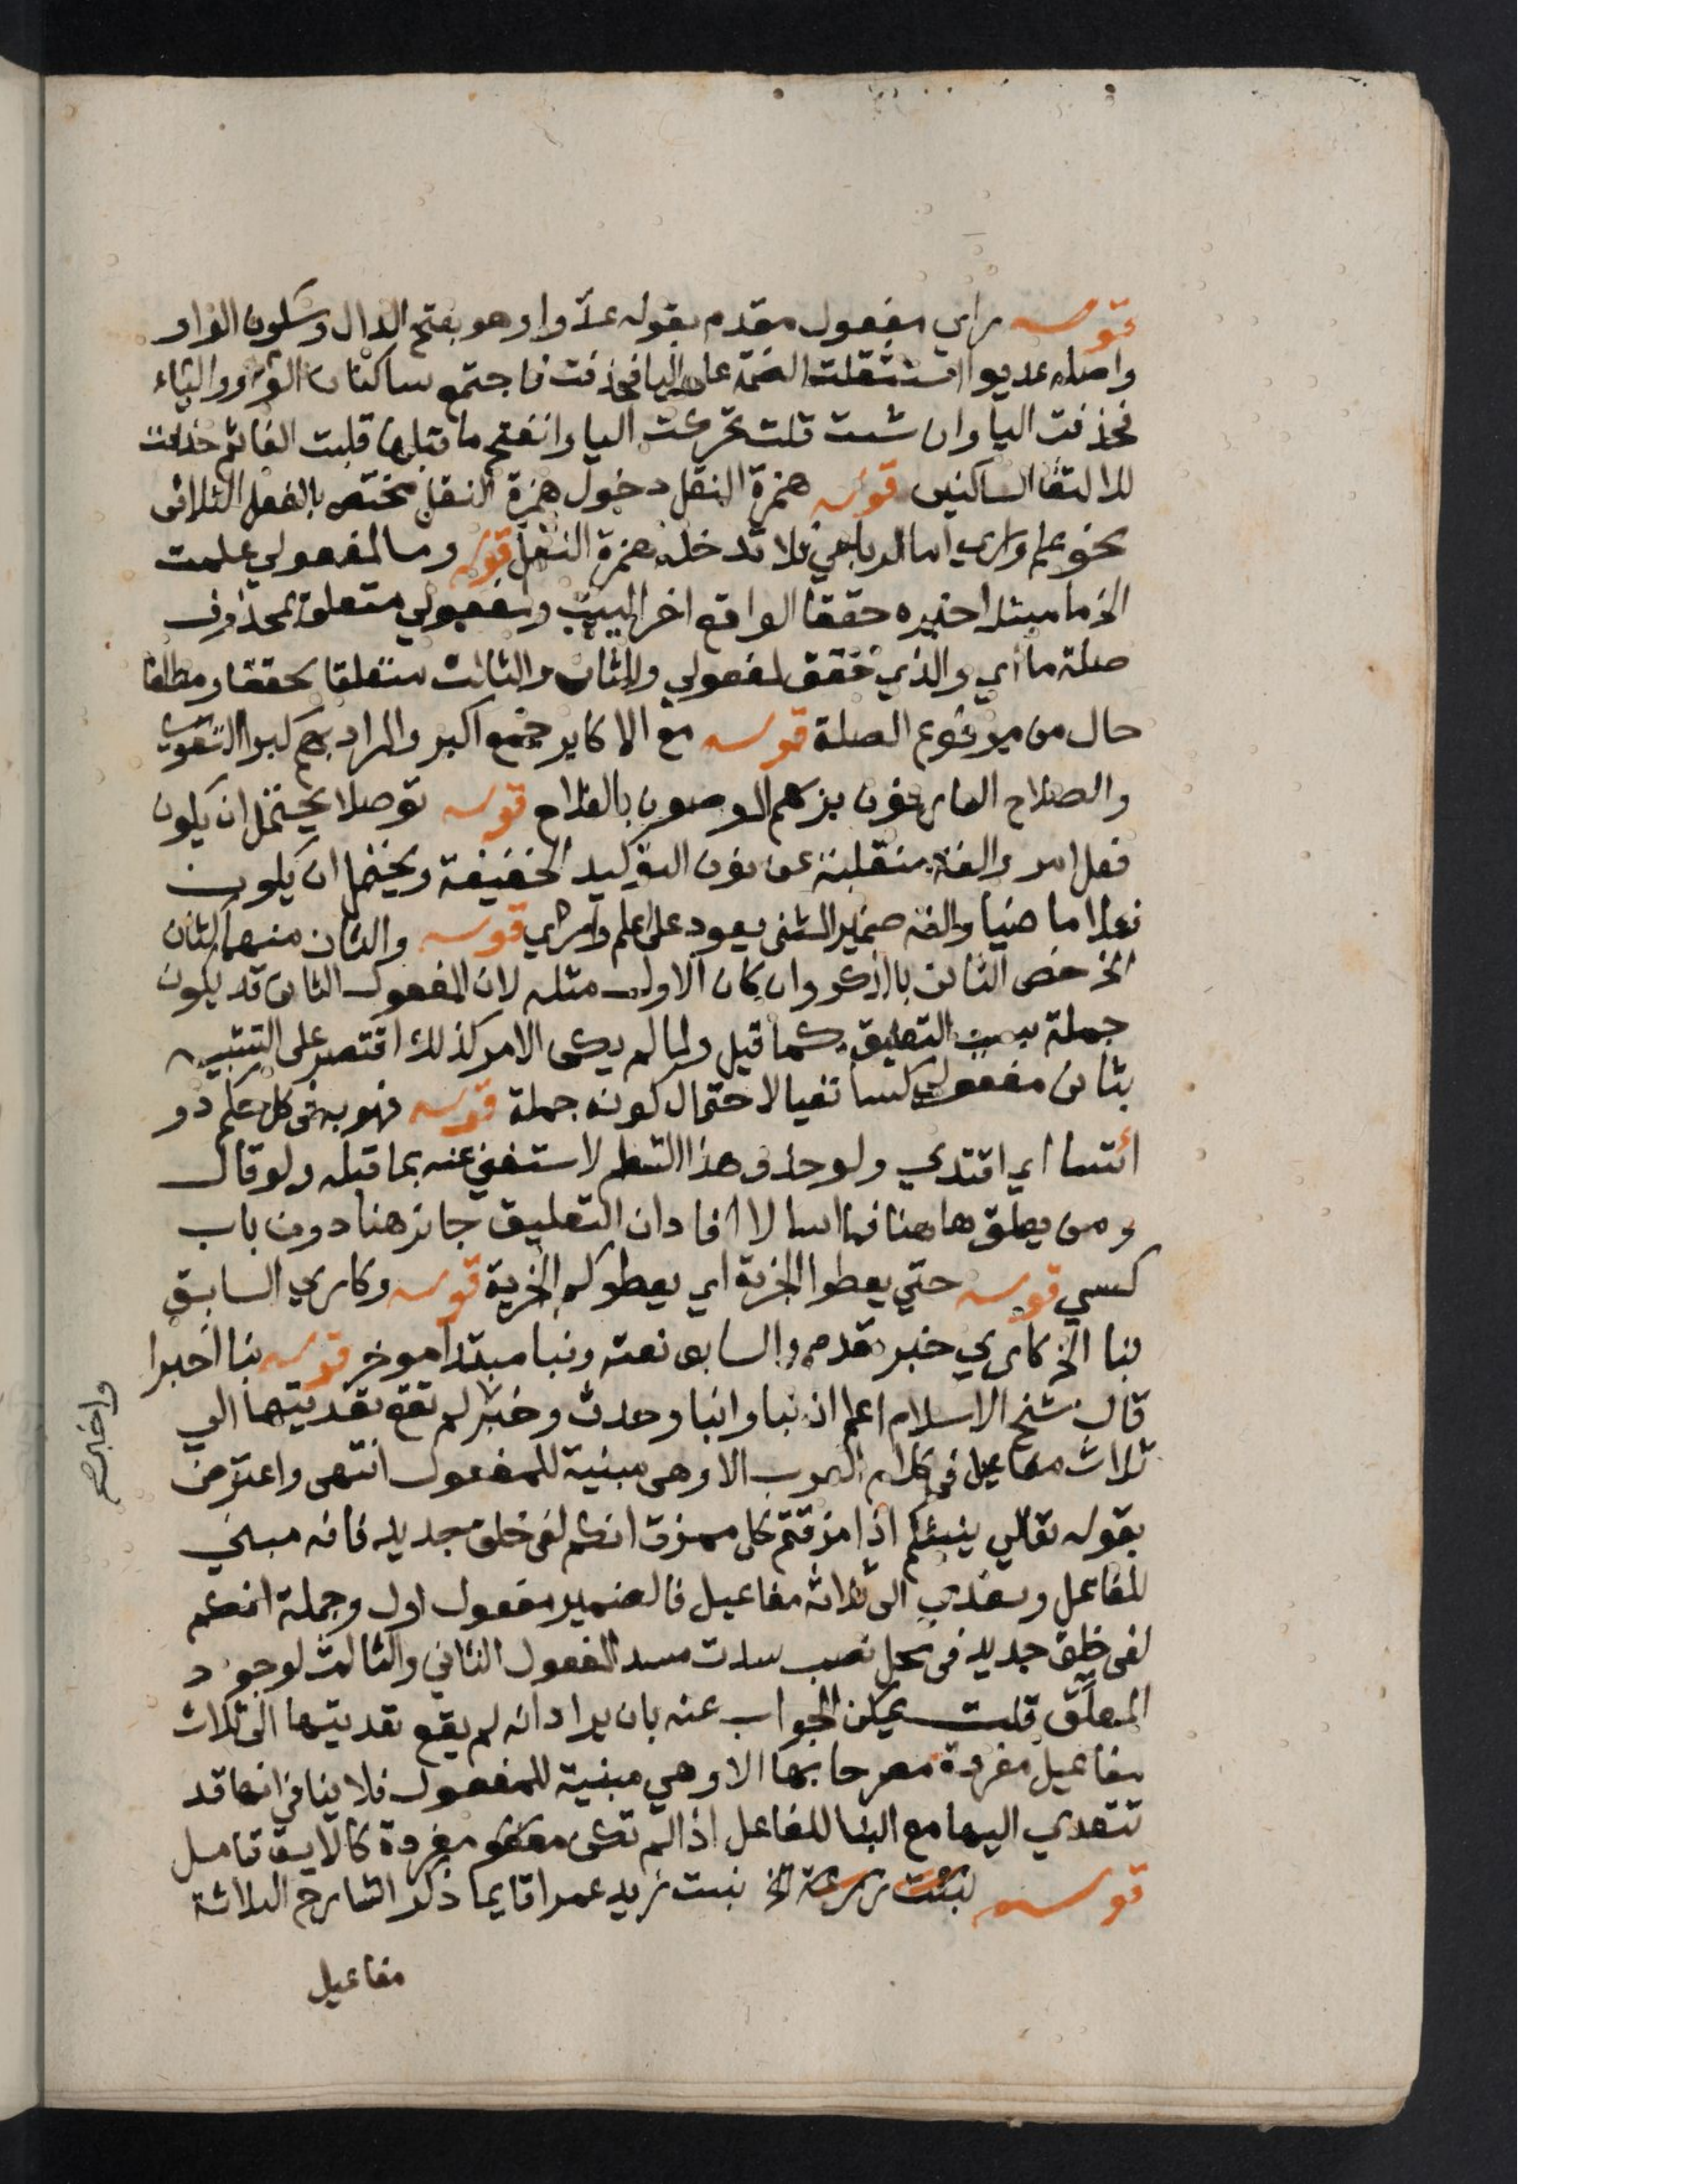 قوله راي مفعول مقدم بقوله عدوا وهو بفتح الدال وسكون الواو
واصله عديوا استثقلت الضمة على اليا فحذفت فاجتمع ساكنان الواو والياء
فحذفت اليا وان شت قلت تحركت اليا وانفتح ما قبلها قلبت الفا ثم حذفت
للالتقا الساكنين قوله همزة النقل دخول همزة النقل مختص بالفعل الثلاثى
نحو علم وراي اما الرباعي فلا تدخله همزة النقل قوله وما لمفعولي علمت
الخ ما مبتدا خبره حققا الواقع اخر البيت ولمفعولي متعلق بمحذوف
صلة ما اي والذي حقق لمفعولي وللثان والثالث متعلقا بحققا ومطلقا
حال من مرفوع الصلة قوله مع الاكابر جمع اكبر والمراد بهم كبرا التقوي
والصلاح العارفون بربهم الموصون بالفلاح قوله توصلا يحتمل ان يكون
فعل امر والفة منقلبة عن نون التوكيد الخفيفة ويحتمل ان يكون
فعلا ماضيا والفه ضمير المثنى يعود على اعلم وارى قوله والثان منهما كثان
الخ خص الثانى بالذكر وان كان الاول مثله لان المفعول الثانى قد يكون
جملة التعليق كما قيل ولما لم يكن الامر كذلك اقتصر على التشبيه
بثانى مفعولي كسا نفيا لاحتمال كونه جملة قوله فهو به فى كل حكم ذو
ائتسا اي اقتدي ولو حذف هذا الشطر لاستغني عنه بما قبله ولو قال
ومن يعلق هاهنا فما اسا لا افاد ان التعليق جايز هنا دون باب
كسي قوله حتي يعطوا الجزية اي يعطوكم الجزية قوله وكاري السابق
نبا الخ كاري خبر مقدم والسابق نعته ونبا مبتدا موخر قوله نبا اخبرا
قال شيخ الاسلام اعلم ان نبا وانبا وحدث وخبر لم تقع تعديتها الي
واخبر صح
ثلاث مفاعيل فى كلام العرب الا وهى مبنية للمفعول انتهى واعترض
بقوله تعالي ينبئكم اذا مزقتم كل ممزق انكم لفى خلق جديد فانه مبني
للفاعل وتعدى الى ثلاثة مفاعيل فالضمير مفعول اول وجملة انكم
لفى خلق جديد فى محل نصب سدت مسد المفعول الثاني والثالث لوجود
المعلق قلت يمكن الجواب عنه بان يراد انه لم يقع تعديتها الى ثلاث
مفاعيل مفردة مصرحا بها الا وهي مبنية للمفعول فلا ينافي انها قد
تتعدي اليها مع البنا للفاعل اذا لم تكن مفردة كالاية تامل
قوله نبئت زرعة الخ نبيت زيد عمرا قايما ذكر الشارح الثلاثة
مفاعيل